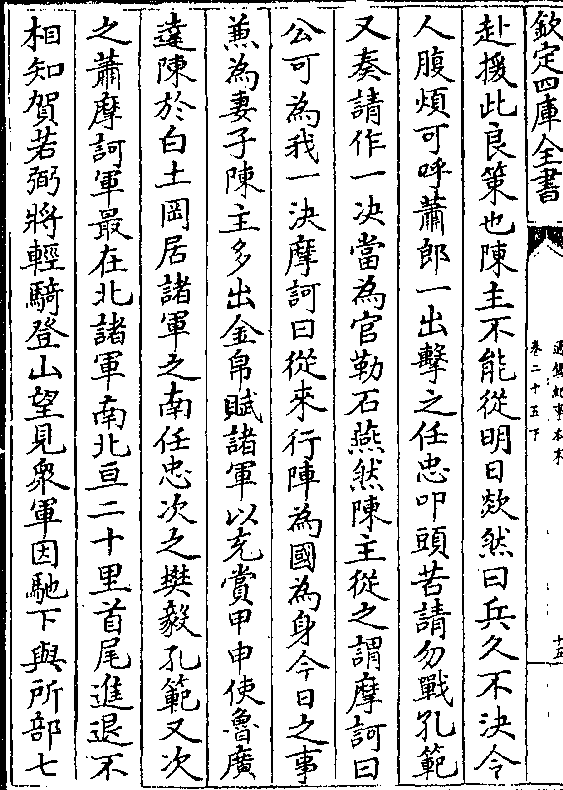 欽定四庫全書
通鑑紀事本末
卷二十五下
十五
赴援此良策也陳主不能從明日欻然曰兵久不決令
人腹煩可呼蕭郎一出擊之任忠叩頭苦請勿戰孔範
又奏請作一決當為官勒石燕然陳主從之謂摩訶曰
公可為我一決摩訶曰從來行陣為國為身今日之事
兼為妻子陳主多出金帛賦諸軍以充賞甲申使魯廣
達陳於白土岡居諸軍之南任忠次之樊毅孔範又次
之蕭摩訶軍最在北諸軍南北亘二十里首尾進退不
相知賀若弼將輕騎登山望見衆軍因馳下與所部七